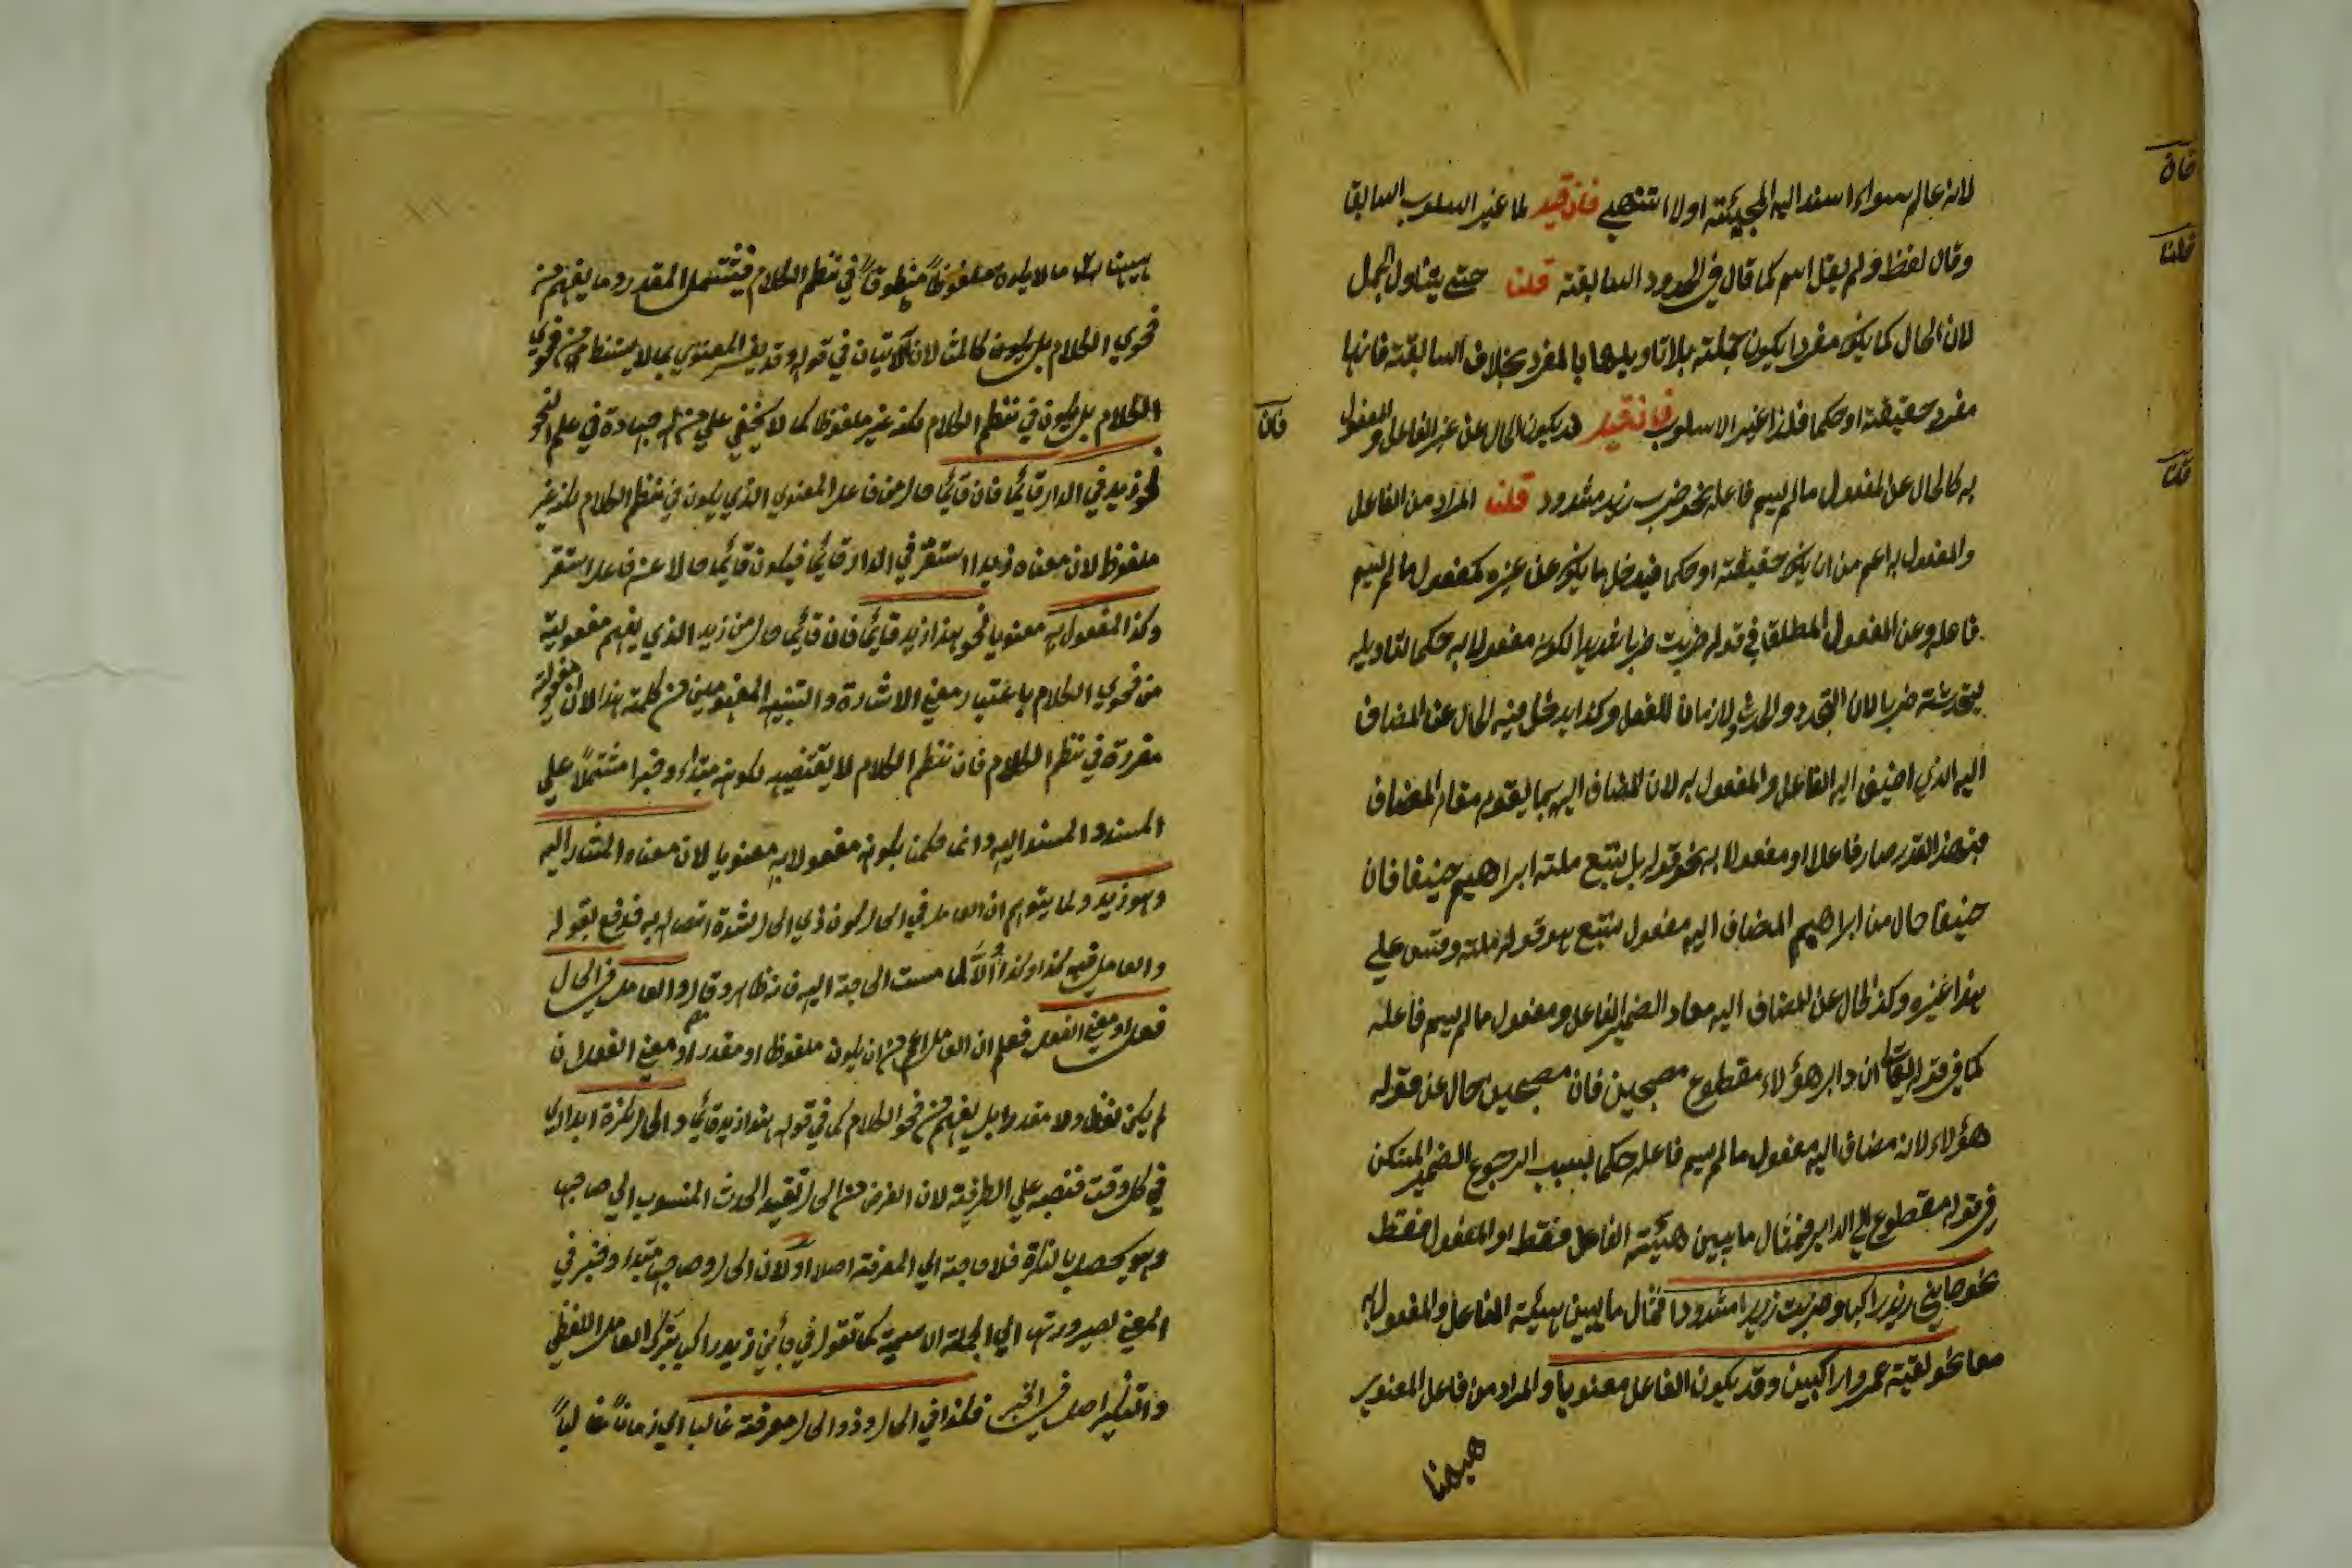 لانه عالم سواء اسند اليه المجيئة او لا انتهي فان قيل لما غير اسلوب السابقة
وقال لفظ ولم يقل اسم كما قال في الحدود السابقة قلنا حتي يتناول الجمل
لان الحال كما يكون مفردا يكون جملة بلا تاويلها بالمفرد بخلاف السابقة فانها
مفرد حقيقة او حكما فلذا غير الاسلوب فان قيل قد يكون الحال عن غير الفاعل والمفعول
به كالحال عن المفعول ما لم يسم فاعله نحو ضرب زيد مشدودا قلنا المراد من الفاعل
والمفعول به اعم من ان يكون حقيقة او حكما فيدخل ما يكون عن غيره كمفعول ما لم يسم
فاعله وعن المفعول المطلق في قوله ضربت ضربا شديدا لكونه مفعولا به حكما لتاويله
ضربا لان التجدد والحدوث لازمان للفعل وكذا يدخل فيه الحال عن المضاف
اليه الذي اضيف اليه الفاعل والمفعول به لان المضاف اليه ربما يقوم مقام المضاف
فبهذا القدر صار فاعلا او مفعولا به نحو قوله بل نتبع ملة ابراهيم حنيفا فان
حنيفا حال من ابراهيم المضاف اليه مفعول نتبع هو قوله ملة وقس علي
هذا غيره وكذا الحال عن المضاف اليه معاد الضمير الفاعل ومفعول ما لم يسم فاعله
كما في قوله تعالي ان دابر هؤلاء مقطوع مصبحين فان مصبحين حال عن قوله
هؤلاء لانه مضاف اليه مفعول ما لم يسم فاعله حكما بسبب الرجوع الضمير المتكن
في قوله مقطوع الي الدابر فمثال ما يبين هيئة الفاعل فقط او المفعول فقط
نحو جاءني زيد راكبا وضربت زيدا مشدودا فمثال ما يبين هيئة الفاعل والمفعول به
معا نحو لقيته عمروا راكبين وقد يكون الفاعل معنويا والمراد من فاعل المعنوي
ههنا
فان
قلنا
فان
قلنا
ما لا يكون ملفوظا منطوقا في نظم الكلام فيشتمل المقدر وما يفهم من
فحوي الكلام بل يكون كالمثالان الآتيان في قوله وقد يفسر المعنوي بما لا يستنبط من فحوي
الكلام بل يكون في نظم الكلام لكنه غير ملفوظ كما لا يخفي علي من له مهارة في علم النحو
نحو زيد في الدار قائما فان قائما حال من فاعل المعنوي الذي يكون في نظم الكلام لكنه غير
ملفوظ لان معناه زيد استقر في الدار قائما فيكون قائما حالا عن فاعل استقر
وكذا المفعول به معنويا نحو هذا زيد قائما فان قائما حال من زيد الذي يفهم مفعوليته
من فحوي الكلام باعتبار معني الاشارة والتنبيه المفهومين من كلمة هذا لان مفعولية
مقررة في نظم الكلام فان نظم الكلام لا يقتضيه لكونه مبتداء وخبرا مشتملا علي
المسند والمسند اليه وانما حكمنا بكونه مفعولا به معنويا لان معناه المشار اليه
وهو زيد ولما يتوهم ان العامل في الحال كون ذي الحال لشدة اتصاله به فدفع بقوله
والعامل فيه كذا وكذا الا لما مست الحاجة اليه فانه ظاهر وقال والعامل في الحال
فعل او معني الفعل فعلم ان العامل اعم من ان يكون ملفوظا او مقدرا او معني الفعل ان
لم يكن لفظا ولا مقدرا بل يفهم من فحو الكلام كما في قوله هذا زيد قائما والحال نكرة ابدا اي
في كل وقت فنصبه علي الظرفية لان الغرض من الحال تقييد الحدث المنسوب الي صاحبها
وهو يحصل بالنكرة فلا حاجة الي المعرفة اصلا او لان الحال وصاحبه مبتداء وخبر في
المعني لصيرورتها الي الجملة الاسمية كما تقول في جاءني زيد راكبا بترك العامل اللفظي
والتنكير اصل في الخبر فكذا في الحال وذو الحال معرفة غالبا اي زمانا غالبا